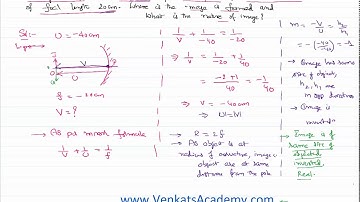 of focal length 20cm. Where is the image is formed and
What is the nature of image?
Sol:- U = -40cm
f = -20cm
V = ?
→ As per mirror formula
1/V + 1/U = 1/f
1/V + 1/-40 = 1/-20
⇒ 1/V = 1/-20 + 1/40
= -2+1/40 = -1/40
⇒ V = -40cm
U = V
→ R = 2f
→ As object is at
radius of curvature, image &
object are at same
distance from the pole
m = -V/U = hi/ho
→ Image has same
size of object,
in opp directions
→ Image is
inverted
→ Image is of
same size of
object
inverted
Real.
www.VenkatsAcademy.com